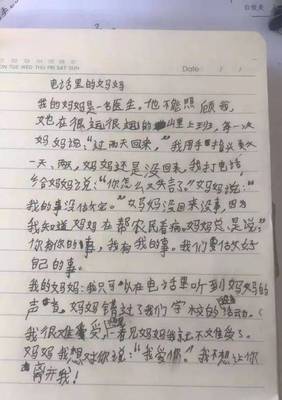 MON TUE WED THU FRI SAT SUN
Date: / /
电话里的妈妈
我的妈妈是一名医生。他不能照顾我,
她在很远很远的山里上班,每一次
妈妈说:“过两天回来,”我用手指头数
一天、两天,妈妈还是没回来,我打电话
给妈妈说:“你怎么又失言了?”妈妈说:“
我的事没做完。”妈妈没回来没事,因为
我知道妈妈在帮农民看病,妈妈总是说:“
你有你的事,我有我的事。我们要做好
自己的事。
我的妈妈:我只可以在电话里听到妈妈的
声音。妈妈错过了我们学校的活动。
我很难受,一看见妈妈我就不难受了。
妈妈我想对你说:“我爱你。”我不想让你
离开我!